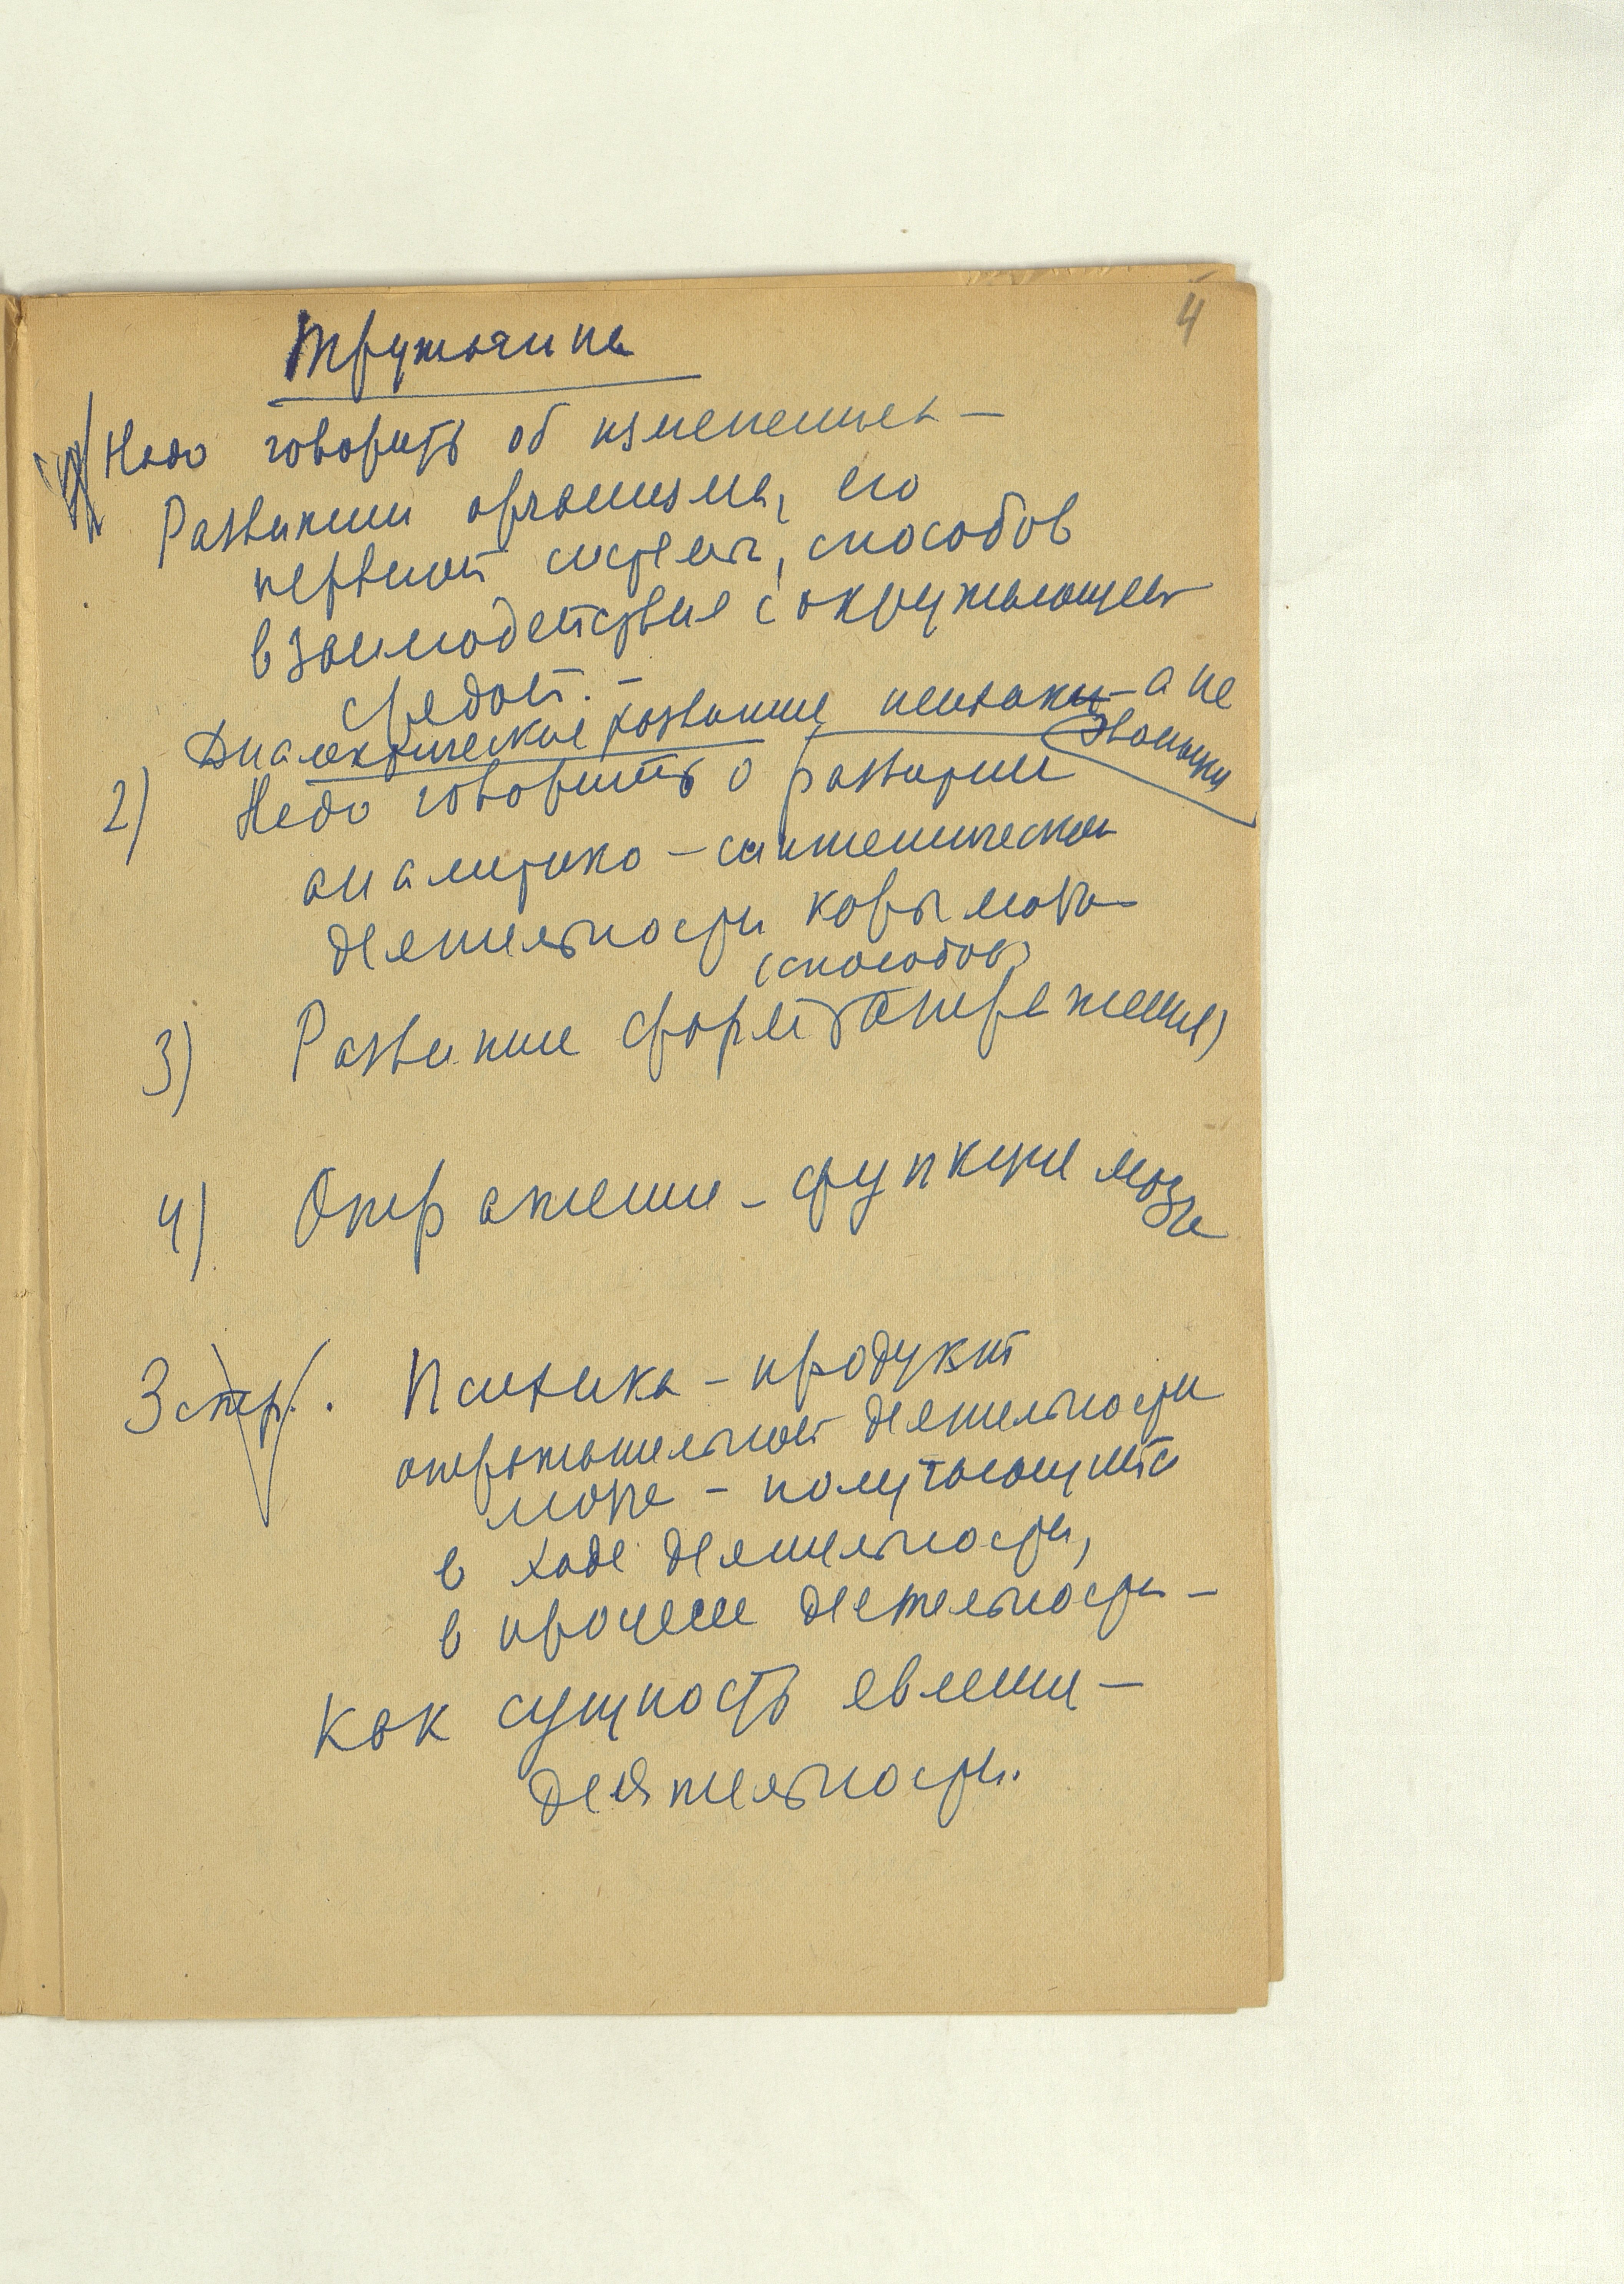 4
Надо говорить об изменениях –
Развитии организма, его
нервной системы, способов
взаимодействия с окружающей
средой. –
Диалектическое развитие психики – а не
эволюции
2) Надо говорить о развитии
аналитико – синтетической
деятельности коры мозга
(способов)
3) Развитие форм отражения)
4) Отражение – функция мозга
3 стр. Психика – продукт
отражательной деятельности
мозга – получающийся
в ходе деятельности,
в процессе деятельности –
как сущность явлений –
деятельности.